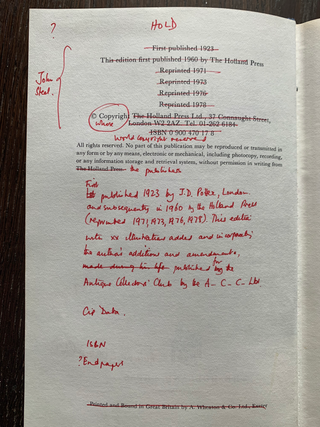 ?
HOLD
First published 1923
This edition first published 1960 by The Holland Press
Reprinted 1971
Reprinted 1973
Reprinted 1976
Reprinted 1978
John
Steel.
© Copyright The Holland Press Ltd., 37 Connaught Street,
London W2 2AZ. Tel. 01-262 6184
whose
ISBN 0 900 470 17 8
world copyright reserved
All rights reserved. No part of this publication may be reproduced or transmitted in
any form or by any means, electronic or mechanical, including photocopy, recording,
or any information storage and retrieval system, without permission in writing from
The Holland Press the publishers
First
published 1923 by J.D. Potter, London
and subsequently in 1960 by the Holland Press
(reprinted 1971, 1973, 1976, 1978). This edition
with xx illustrations added and incorporating
the author's additions and amendments,
made during his life published for by the
Antique Collectors' Club by the A-C-C Ltd.
ISBN
? Endpapers
Printed and Bound in Great Britain by A. Wheaton & Co. Ltd., Exeter